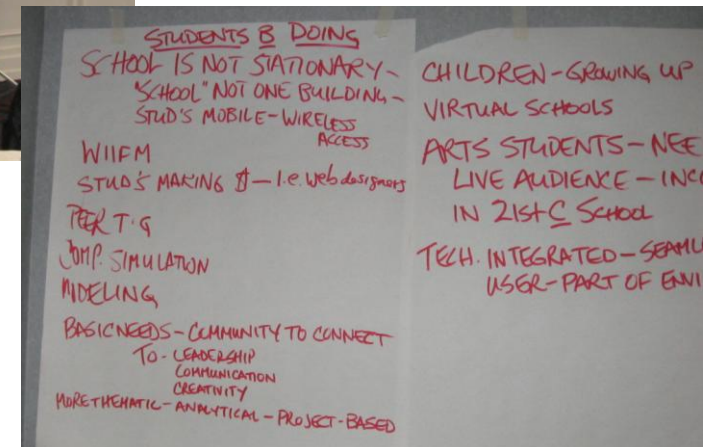 STUDENTS B DOING
SCHOOL IS NOT STATIONARY -
"SCHOOL" NOT ONE BUILDING -
STUD'S MOBILE - WIRELESS
ACCESS
WIIFM
STUD'S MAKING $ - I.e. web designers
PEER T·G
COMP. SIMULATION
MODELING
BASIC NEEDS - COMMUNITY TO CONNECT
TO - LEADERSHIP
COMMUNICATION
CREATIVITY
MORE THEMATIC - ANALYTICAL - PROJECT-BASED
CHILDREN - GROWING UP
VIRTUAL SCHOOLS
ARTS STUDENTS - NEE
LIVE AUDIENCE - INC
IN 21st C SCHOOL
TECH. INTEGRATED - SEAML
USER - PART OF ENVI